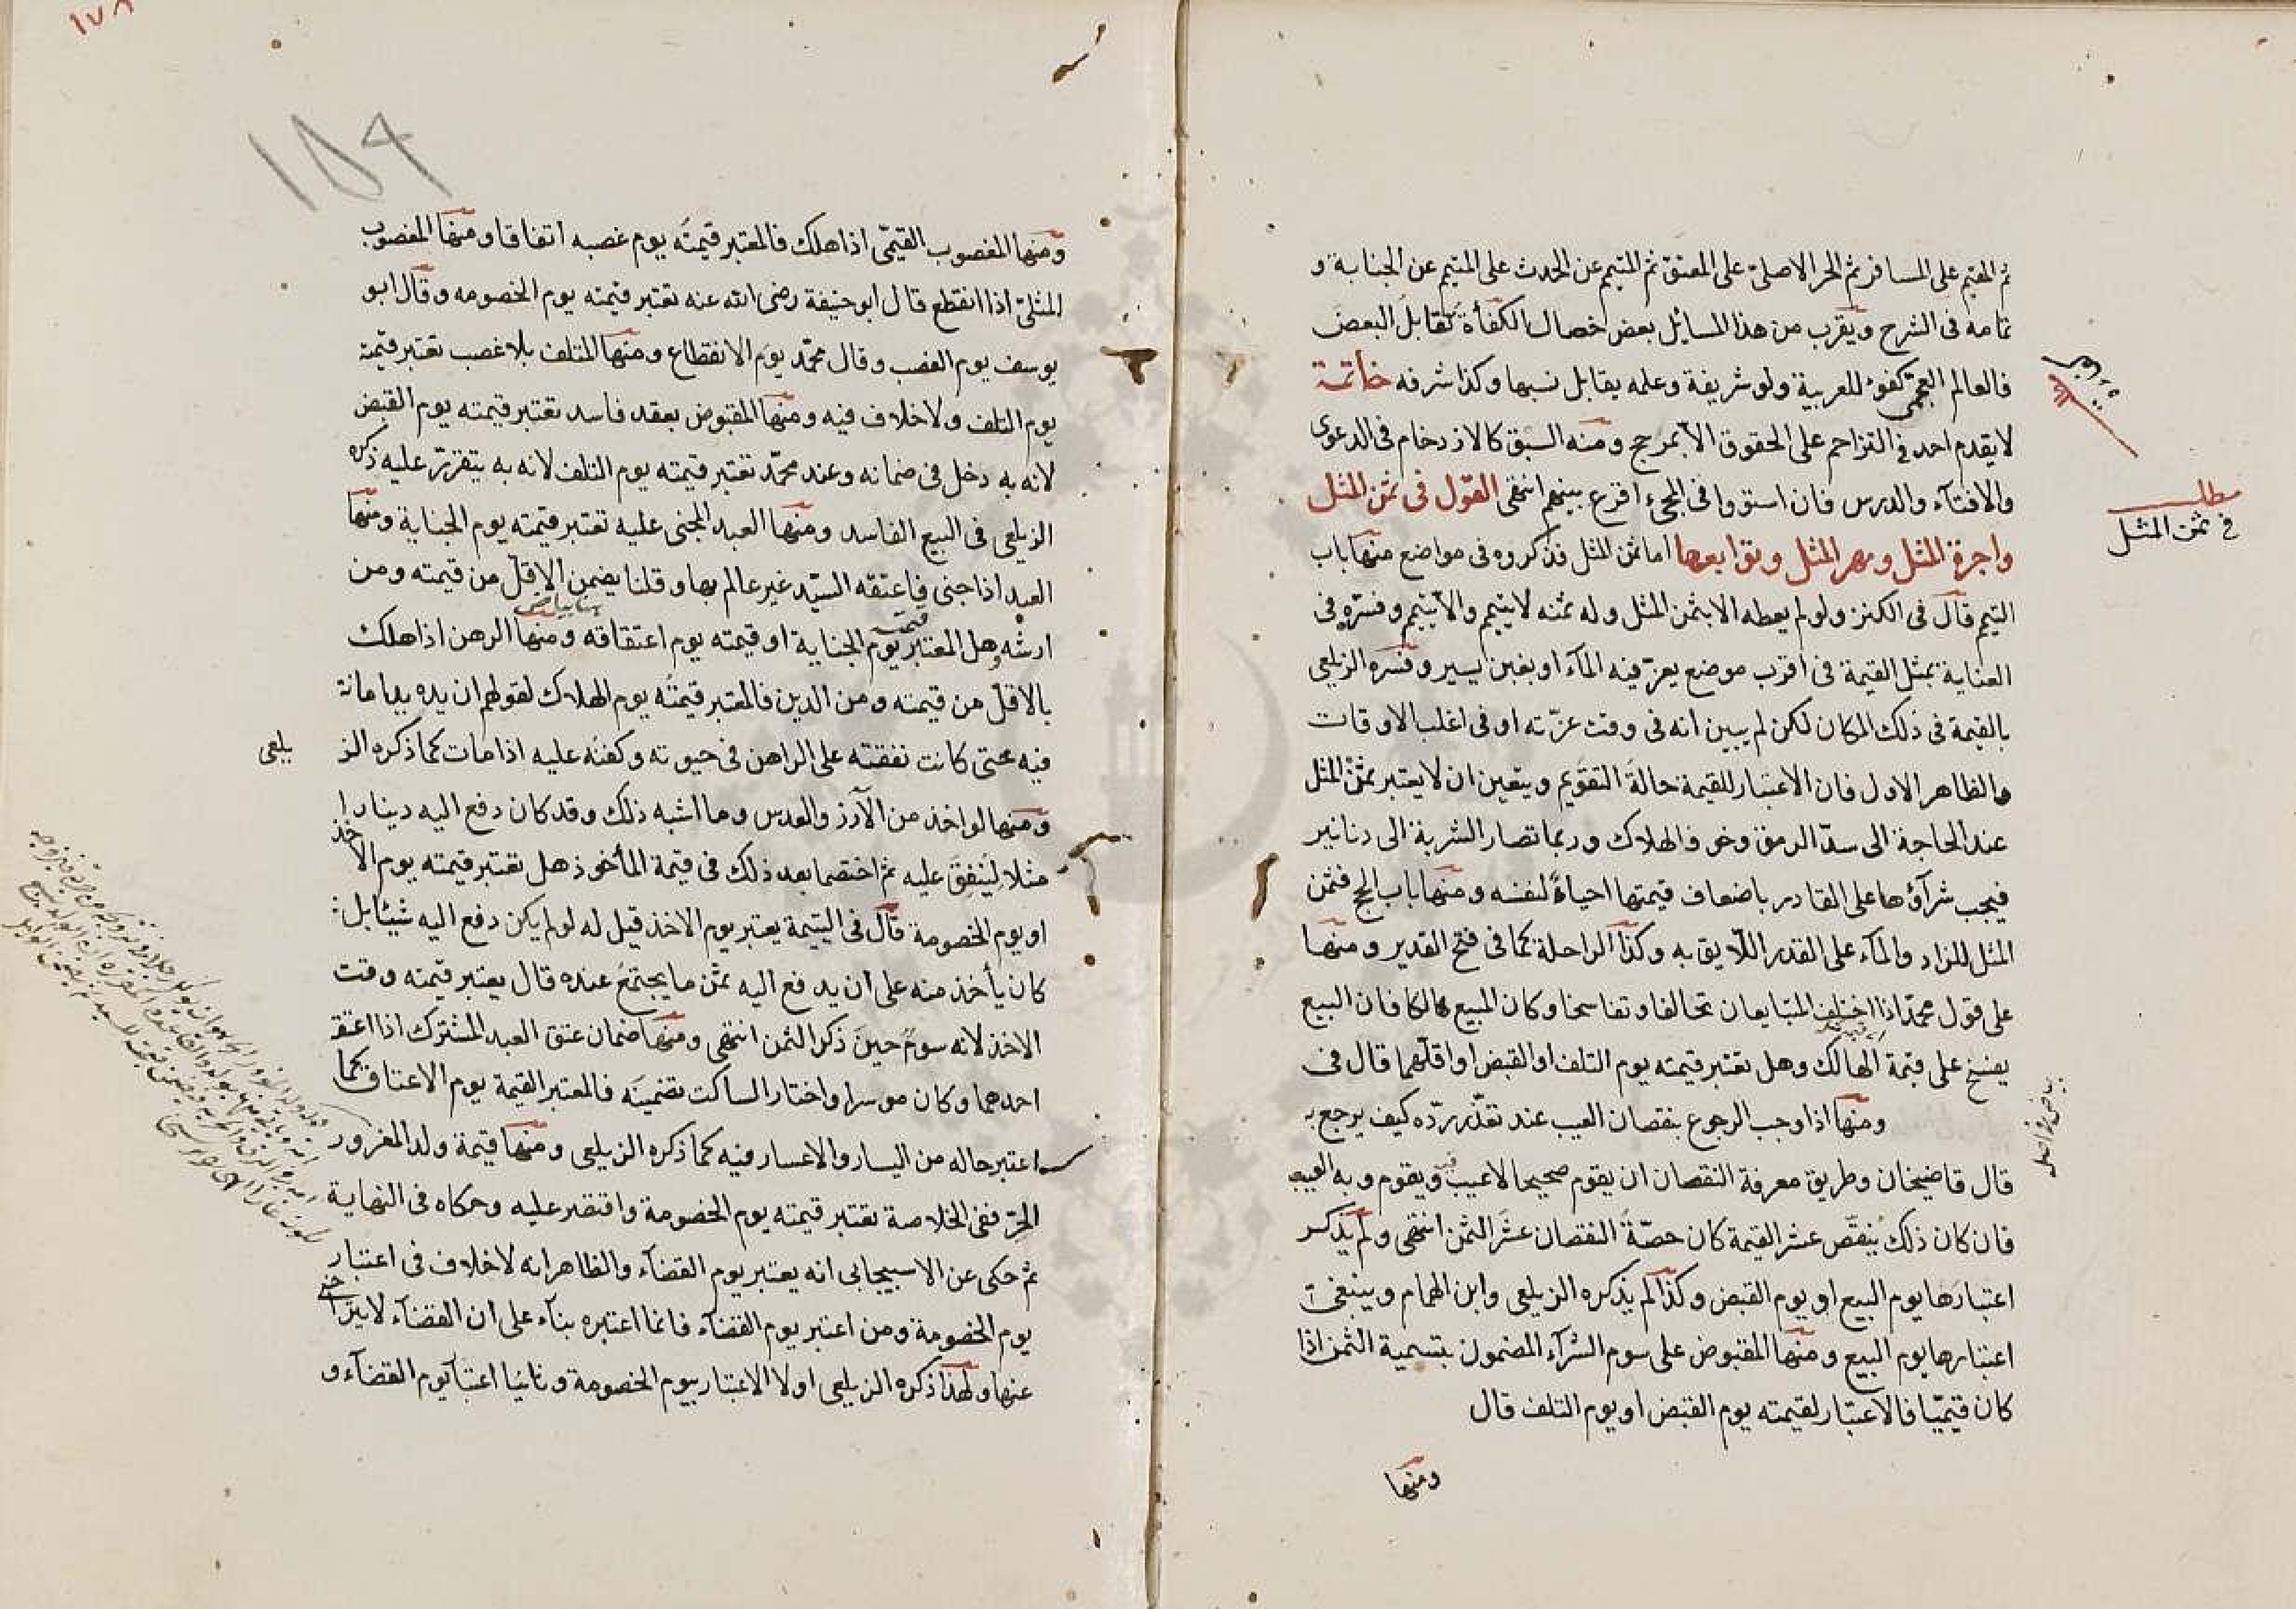 ثم المقيم على المسافر ثم الحر الاصلى على المعتق ثم المتيمم عن الحدث على المتيمم عن الجنابة و
تمامه فى الشرح ويقرب من هذا المسائل بعض خصال الكفأة تقابل البعض
فالعالم العجمى كفوء للعربية ولو شريفة وعلمه يقابل نسبها وكذا شرفه خاتمة
لا يقدم احد فى التزاحم على الحقوق الا بمرجح ومنه السبق كالازدحام فى الدعوى
والافتآء والدرس فان استووا فى المجئ اقرع بينهم انتهى القول فى ثمن المثل
واجرة المثل ومهر المثل وتوابعها اما ثمن المثل فذكروه فى مواضع منها باب
التيمم قال فى الكنز ولو لم يعطه الا بثمن المثل وله ثمنه لا يتيمم والا يتيمم وفسره فى
العناية بمثل القيمة فى اقرب موضع يعز فيه المآء او بغبن يسير وفسره الزيلعى
بالقيمة فى ذلك المكان لكن لم يبين انه فى وقت عزته او فى اغلب الاوقات
والظاهر الاول فان الاعتبار للقيمة حالة التقويم ويتعين ان لا يعتبر بثمن المثل
عند الحاجة الى سد الرمق وخوف الهلاك وربما تصار الشربة الى دنانير
فيجب شرآؤها على القادر باضعاف قيمتها احياء لنفسه ومنها باب الحج فثمن
المثل للزاد والمآء على القدر اللايق به وكذا الراحلة كما فى فتح القدير ومنها
على قول محمد اذا اختلف المتبايعان تحالفا وتفاسخا وكان المبيع هالكا فان البيع
يفسخ على قيمة الهالك وهل تعتبر قيمته يوم التلف او القبض او اقلهما قال فى
ومنها اذا وجب الرجوع بنقصان العيب عند تعذر رده كيف يرجع به
قال قاضيخان وطريق معرفة النقصان ان يقوم صحيحا لا عيب فيه ويقوم وبه العيب
فان كان ذلك ينقص عشر القيمة كان حصة النقصان عشر الثمن انتهى ولم يذكر
اعتبارها يوم البيع او يوم القبض وكذا لم يذكره الزيلعى وابن الهمام وينبغى
اعتبارها يوم البيع ومنها المقبوض على سوم الشرآء المضمون بتسمية الثمن اذا
كان قيميا فالاعتبار لقيمته يوم القبض او يوم التلف قال
ومنها
مطلب
فى ثمن المثل
ومنها المغصوب القيمى اذا هلك فالمعتبر قيمته يوم غصبه اتفاقا ومنها المغصوب
المثلى اذا انقطع قال ابو حنيفة رضى الله عنه تعتبر قيمته يوم الخصومه وقال ابو
يوسف يوم الغصب وقال محمد يوم الانقطاع ومنها المتلف بلا غصب تعتبر قيمته
يوم التلف ولا خلاف فيه ومنها المقبوض بعقد فاسد تعتبر قيمته يوم القبض
لانه به دخل فى ضمانه وعند محمد تعتبر قيمته يوم التلف لانه به يتقرر عليه ذكره
الزيلعى فى البيع الفاسد ومنها العبد المجنى عليه تعتبر قيمته يوم الجناية ومنها
العبد اذا جنى فاعتقه السيد غير عالم بها وقلنا يضمن الاقل من قيمته ومن
ارشه وهل المعتبر قيمته يوم الجناية او قيمته يوم اعتقاقه ومنها الرهن اذا هلك
بالاقل من قيمته ومن الدين فالمعتبر قيمته يوم الهلاك لقولهم ان يده يد امانة
فيه حتى كانت نفقته على الراهن فى حيوته وكفنه عليه اذا مات كما ذكره الز
يلعى
ومنها لو اخذ من الآرز والعدس وما اشبه ذلك وقد كان دفع اليه دينارا
مثلا لينفق عليه ثم اختصما بعد ذلك فى قيمة المأخوذ هل تعتبر قيمته يوم الاخذ
او يوم الخصومة قال فى اليتيمة يعتبر يوم الاخذ قيل له لو لم يكن دفع اليه شيئا بل
كان يأخذ منه على ان يدفع اليه ثمن ما يجتمع عنده قال يعتبر قيمته وقت
الاخذ لانه سوم حين ذكر الثمن انتهى ومنها ضمان عتق العبد المشترك اذا اعتقه
احدهما وكان موسرا واختار الساكت تضمينه فالمعتبر القيمة يوم الاعتاق كما
اعتبر حاله من اليسار والاعسار فيه كما ذكره الزيلعى ومنها قيمة ولد المغرور
الحر ففى الخلاصة تعتبر قيمته يوم الخصومة واقتصر عليه وحكاه فى النهاية
ثم حكى عن الاسبيجابى انه يعتبر يوم القضآء والظاهر انه لا خلاف فى اعتبار
يوم الخصومة ومن اعتبر يوم القضآء فانما اعتبره بنآء على ان القضآء لا يتراخى
عنها ولهذا ذكره الزيلعى اولا الاعتبار بيوم الخصومة وثانيا اعتبآ يوم القضآء و
١٧٨
١٥٩